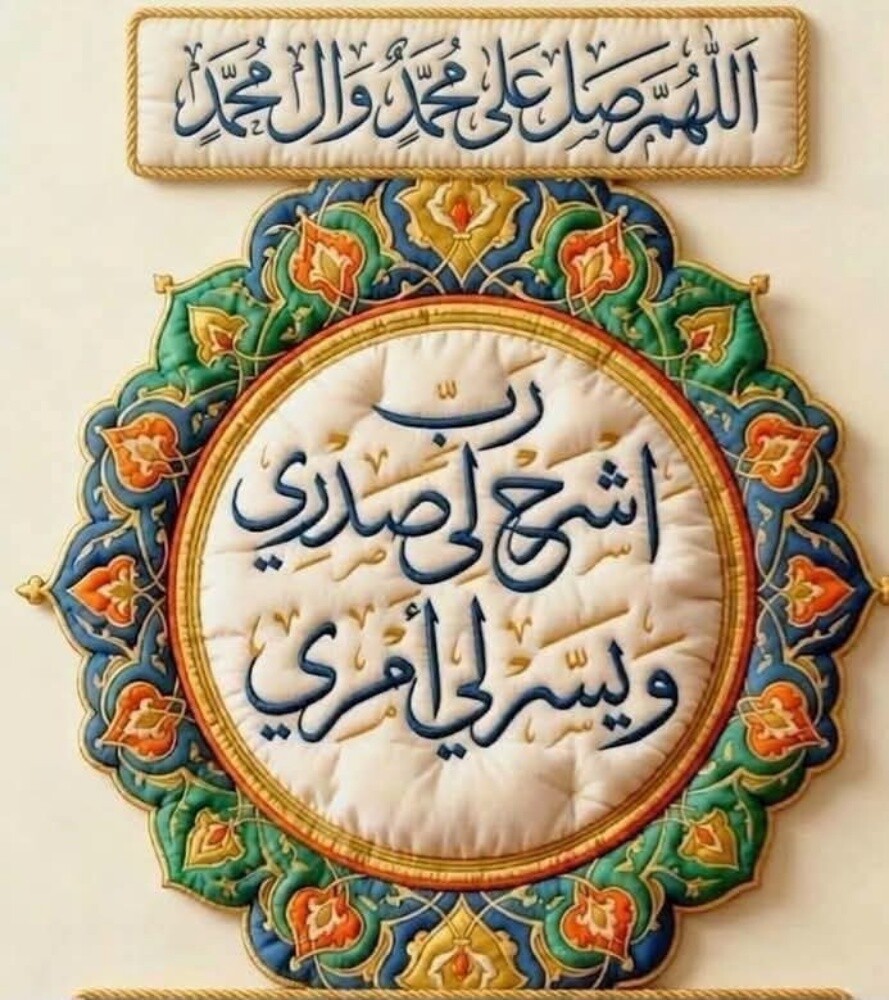 اَللّٰهُمَّ صَلِّ عَلَى مُحَمَّدٍ وَآلِ مُحَمَّدٍ
رَبِّ
اشرح لي صدري
ويسّر لي أمري